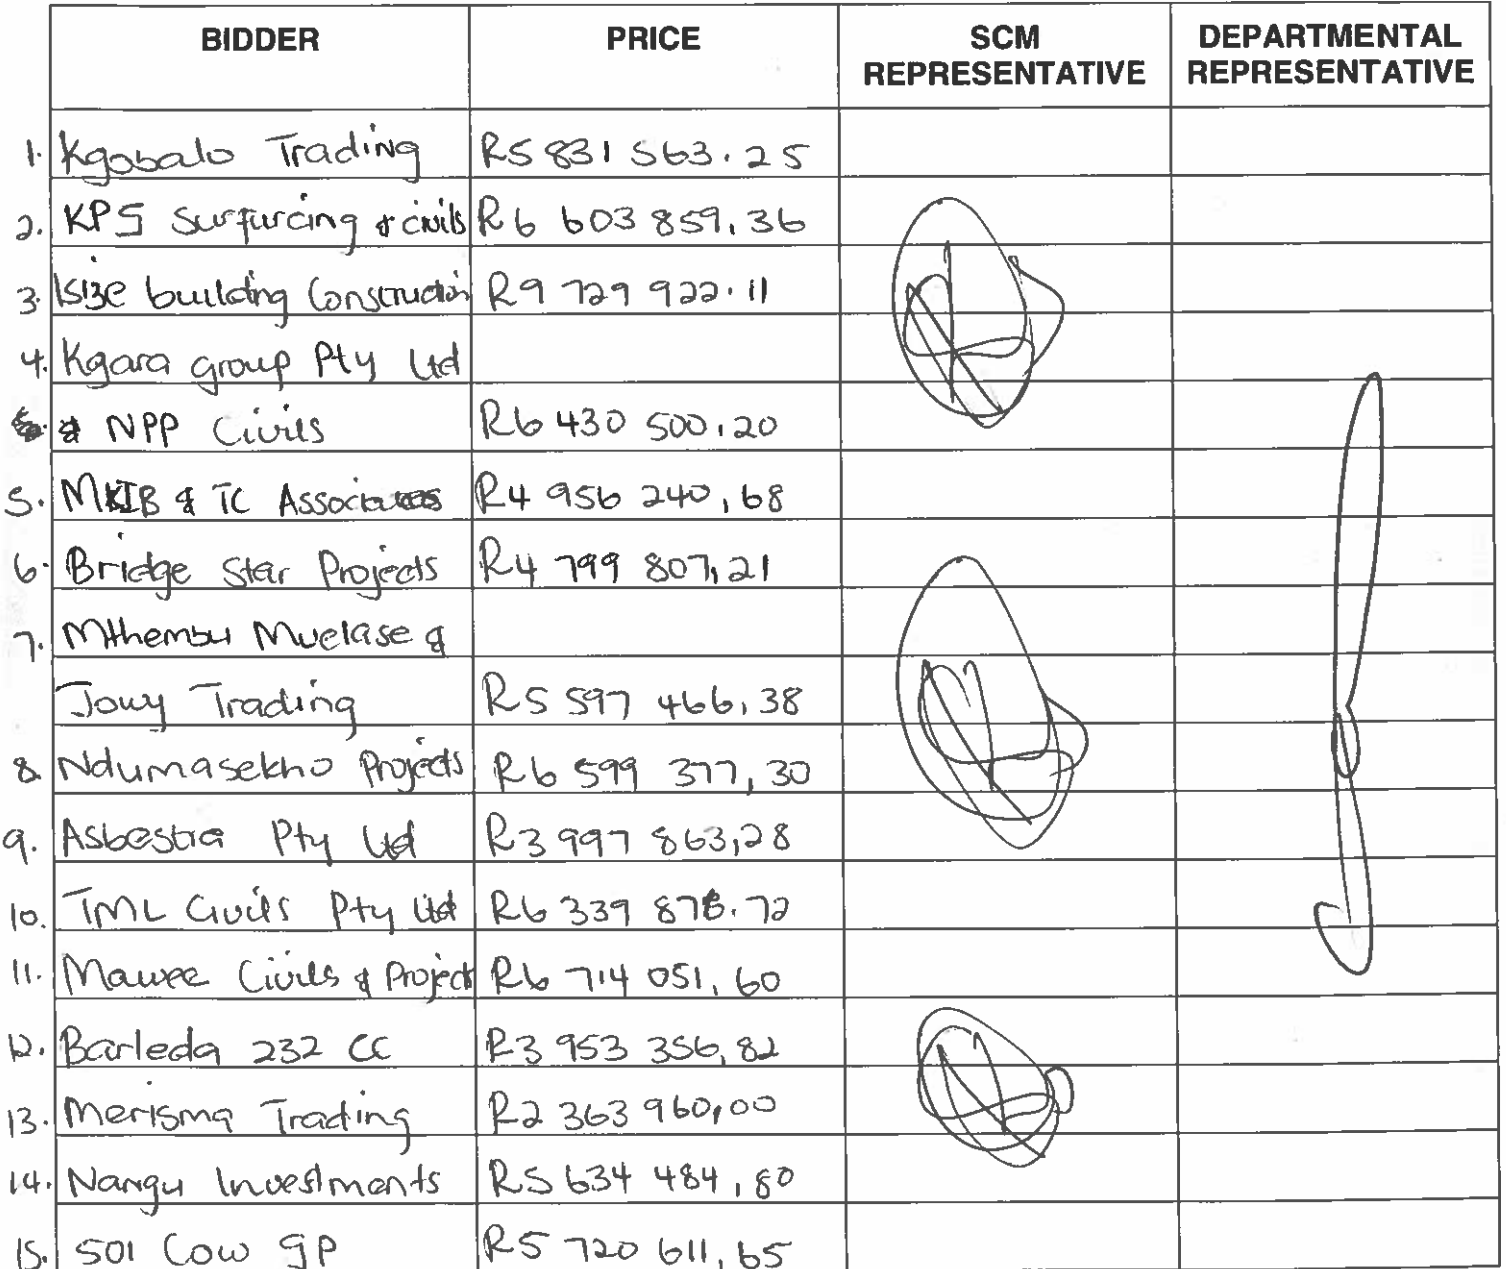 BIDDER PRICE SCM REPRESENTATIVE DEPARTMENTAL REPRESENTATIVE
1. Kgobalo Trading R5 831 563.25
2. KPS Surfurcing & civils R6 603 859.36
3. Isize building Construction R9 729 922.11
4. Kgara group Pty Ltd
& NPP Civils R6 430 500.20
5. MKIB & TC Associates R4 956 240,68
6. Bridge Star Projects R4 799 807,21
7. Mthembu Mvelase &
Jowy Trading R5 597 466,38
8. Ndumasekho Projects R6 599 377,30
9. Asbestra Pty Ltd R3 997 863,28
10. TML Civils Pty Ltd R6 339 876.72
11. Mawee Civils & Project R6 714 051,60
12. Barleda 232 CC R3 953 356,82
13. Merisma Trading R2 363 960,00
14. Nangu Investments R5 634 484,80
15. 501 Cow gp R5 720 611,65